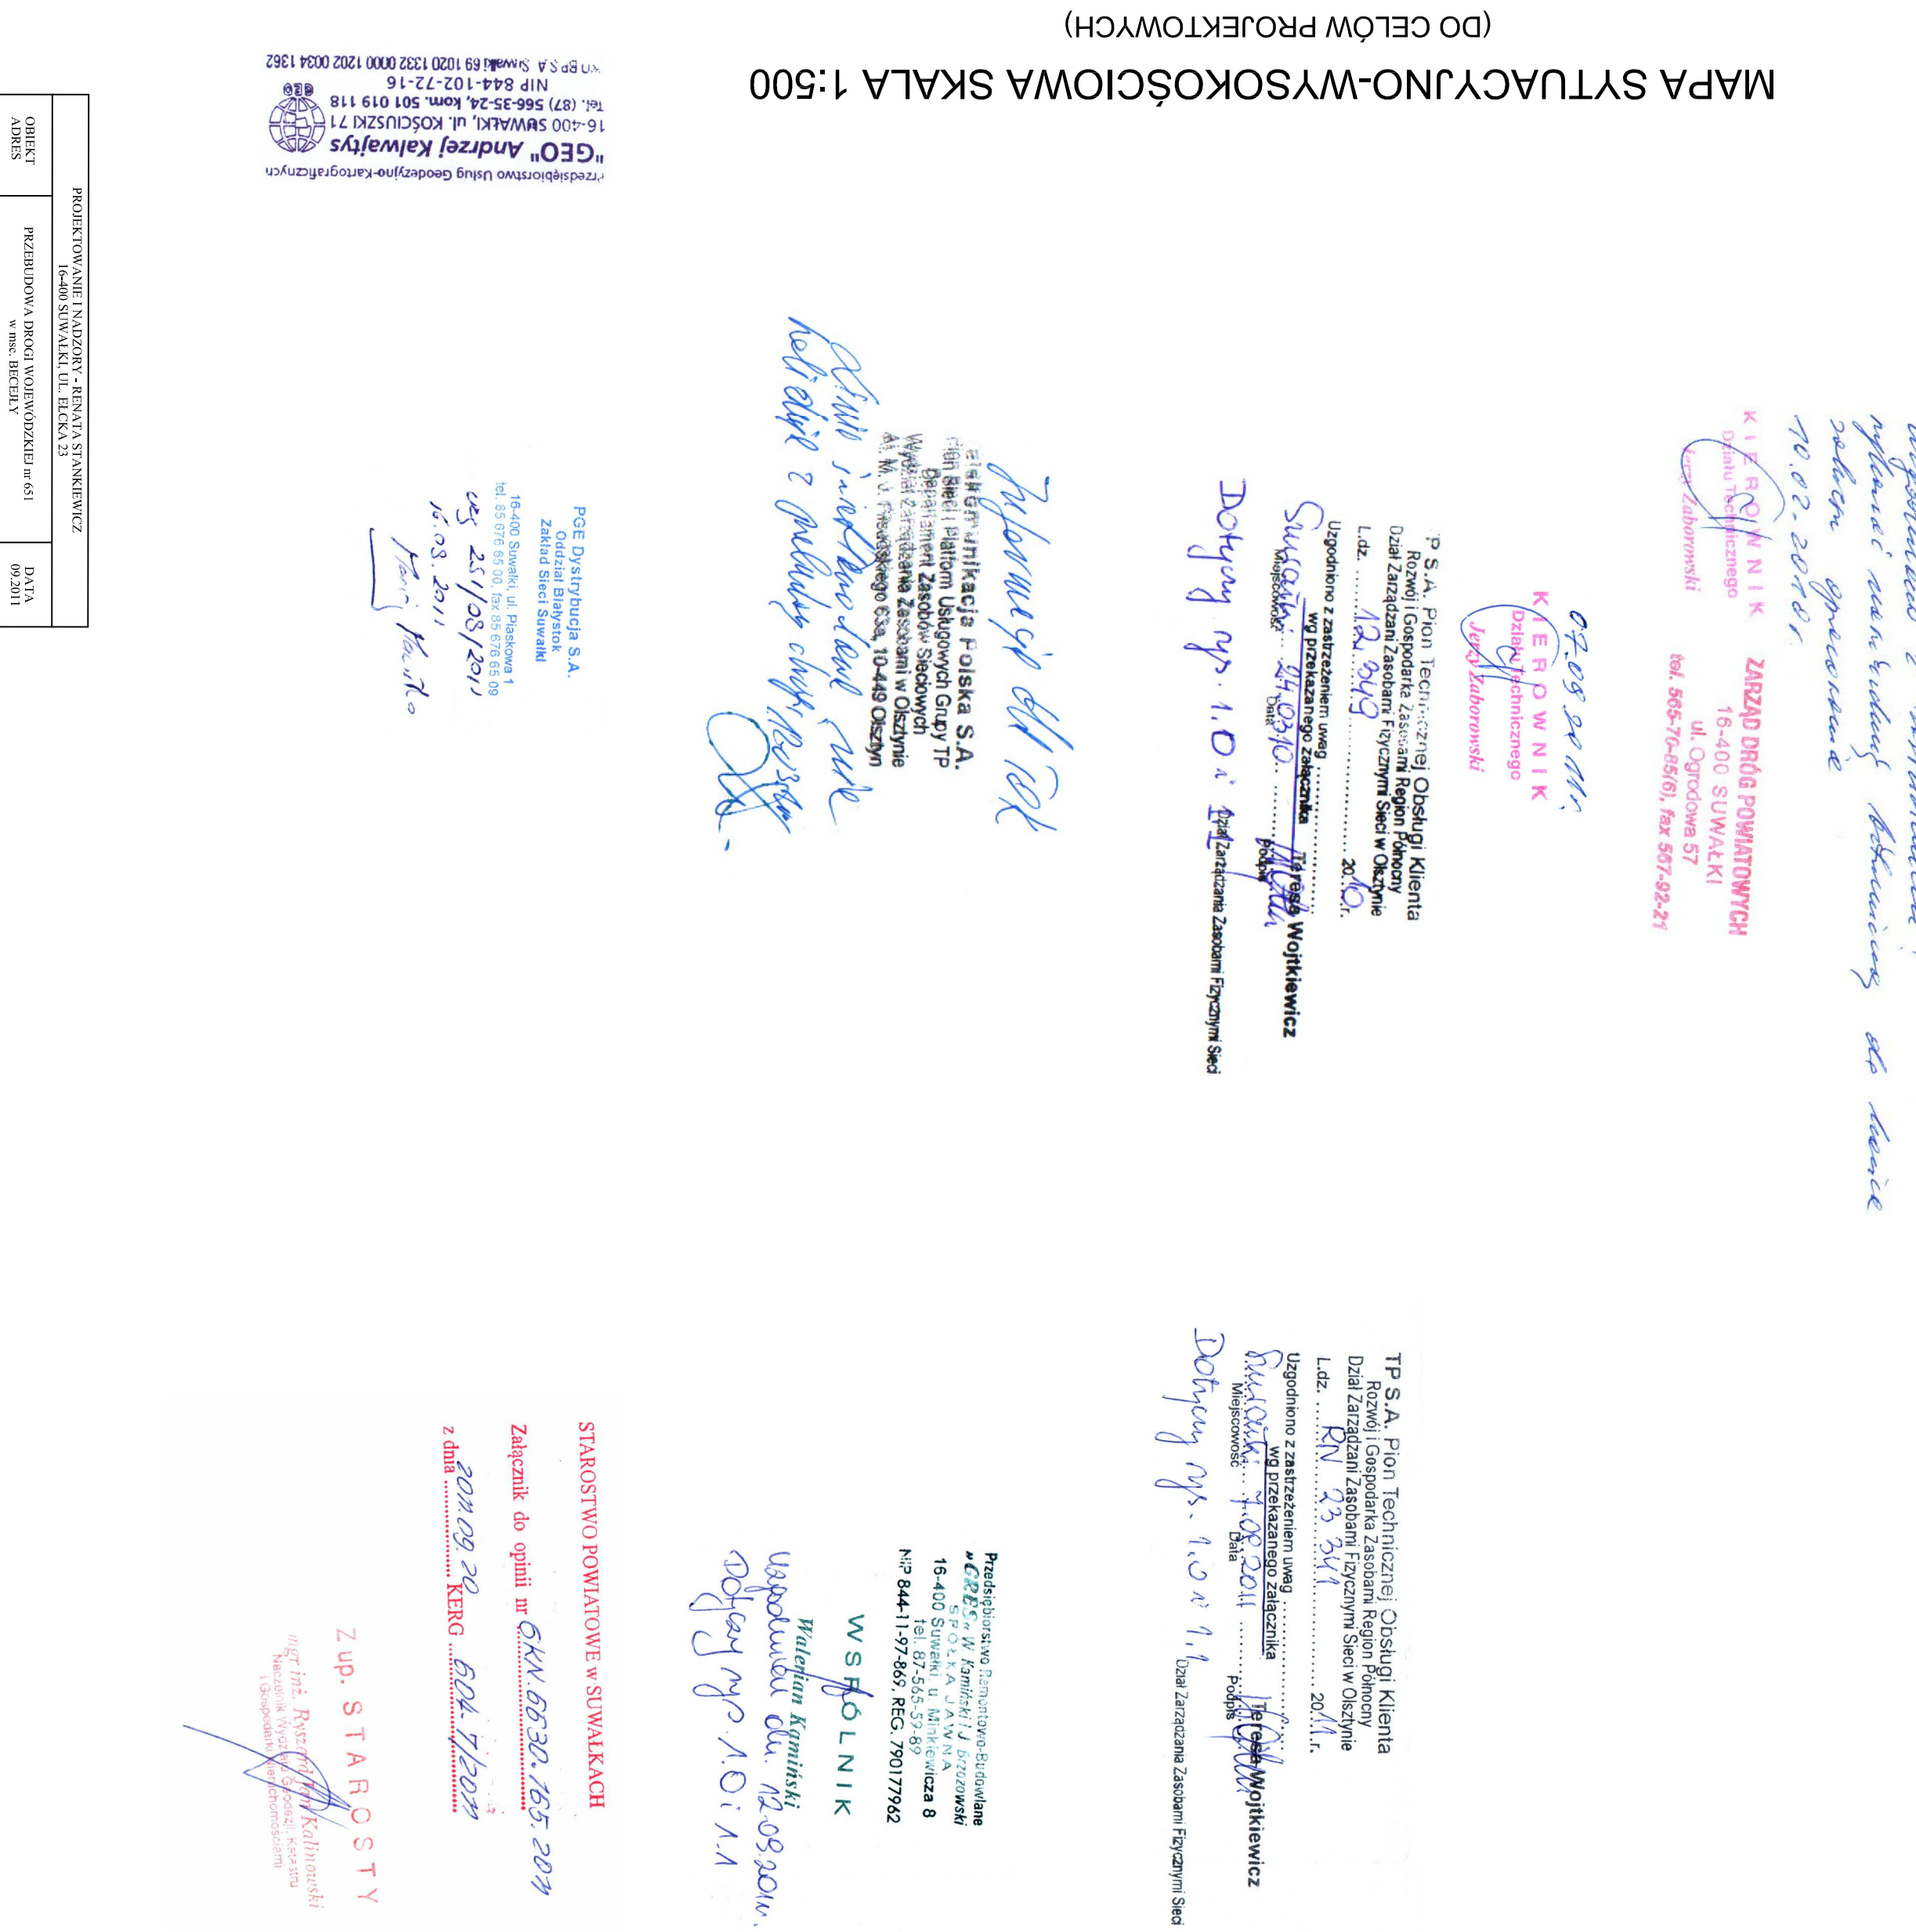 MAPA SYTUACYJNO-WYSOKOŚCIOWA SKALA 1:500
(DO CELÓW PROJEKTOWYCH)
Przedsiębiorstwo Usług Geodezyjno-Kartograficznych
"GEO" Andrzej Kalwajtys
16-400 SUWAŁKI, ul. KOŚCIUSZKI 71
Tel. (87) 566-35-24, kom. 501 019 118
NIP 844-102-72-16
BP S.A. Suwałki 69 1020 1332 0000 1202 0034 1362
GEO
PROJEKTOWANIE I NADZORY - RENATA STANKIEWICZ
16-400 SUWAŁKI, UL. EŁCKA 23
OBIEKT
ADRES
PRZEBUDOWA DROGI WOJEWÓDZKIEJ nr 651
w msc. BECEJŁY
DATA
09.2011
10.02.2010r.
KIEROWNIK
Działu Technicznego
Jerzy Zaborowski
ZARZĄD DRÓG POWIATOWYCH
16-400 SUWAŁKI
ul. Ogrodowa 57
tel. 565-70-85(6), fax 567-92-21
07.09.2011r.
KIEROWNIK
Działu Technicznego
Jerzy Zaborowski
TP S.A. Pion Technicznej Obsługi Klienta
Rozwój i Gospodarka Zasobami Region Północny
Dział Zarządzani Zasobami Fizycznymi Sieci w Olsztynie
L.dz. 12.349 2010.r.
Uzgodniono z zastrzeżeniem uwag
wg przekazanego załącznika
Teresa Wojtkiewicz
Suwałki 24.03.10
Miejscowość Data Podpis
Dział Zarządzania Zasobami Fizycznymi Sieci
Dotyczy rys. 1.0 i 1.1
Telekomunikacja Polska S.A.
Pion Sieci i Platform Usługowych Grupy TP
Departament Zasobów Sieciowych
Wydział Zarządzania Zasobami w Olsztynie
Al. M. J. Piłsudskiego 63a, 10-449 Olsztyn
PGE Dystrybucja S.A.
Oddział Białystok
Zakład Sieci Suwałki
16-400 Suwałki, ul. Piaskowa 1
tel. 85 676 65 00, fax 85 676 65 09
251/09/2011
16.09.2011
TP S.A. Pion Technicznej Obsługi Klienta
Rozwój i Gospodarka Zasobami Region Północny
Dział Zarządzani Zasobami Fizycznymi Sieci w Olsztynie
L.dz. RN 23 341 2011.r.
Uzgodniono z zastrzeżeniem uwag
wg przekazanego załącznika
Teresa Wojtkiewicz
Suwałki 7.09.2011
Miejscowość Data Podpis
Dział Zarządzania Zasobami Fizycznymi Sieci
Dotyczy rys. 1.0 i 1.1
Przedsiębiorstwo Remontowo-Budowlane
"GRES" W Kamiński i J Brzozowski
SPÓŁKA JAWNA
16-400 Suwałki, u. Minkiewicza 8
tel. 87-565-59-89
NIP 844-11-97-869, REG. 790177962
WSPÓLNIK
Walerian Kamiński
Uzgodniono dn. 12.09.2011r.
Dotyczy rys. 1.0 i 1.1
STAROSTWO POWIATOWE w SUWAŁKACH
Załącznik do opinii nr GKN.6630.165.2011
z dnia 2011.09.20 KERG 604.7/2011
Z up. STAROSTY
mgr inż. Ryszard Jan Kalinowski
Naczelnik Wydziału Geodezji, Katastru
i Gospodarki Nieruchomościami